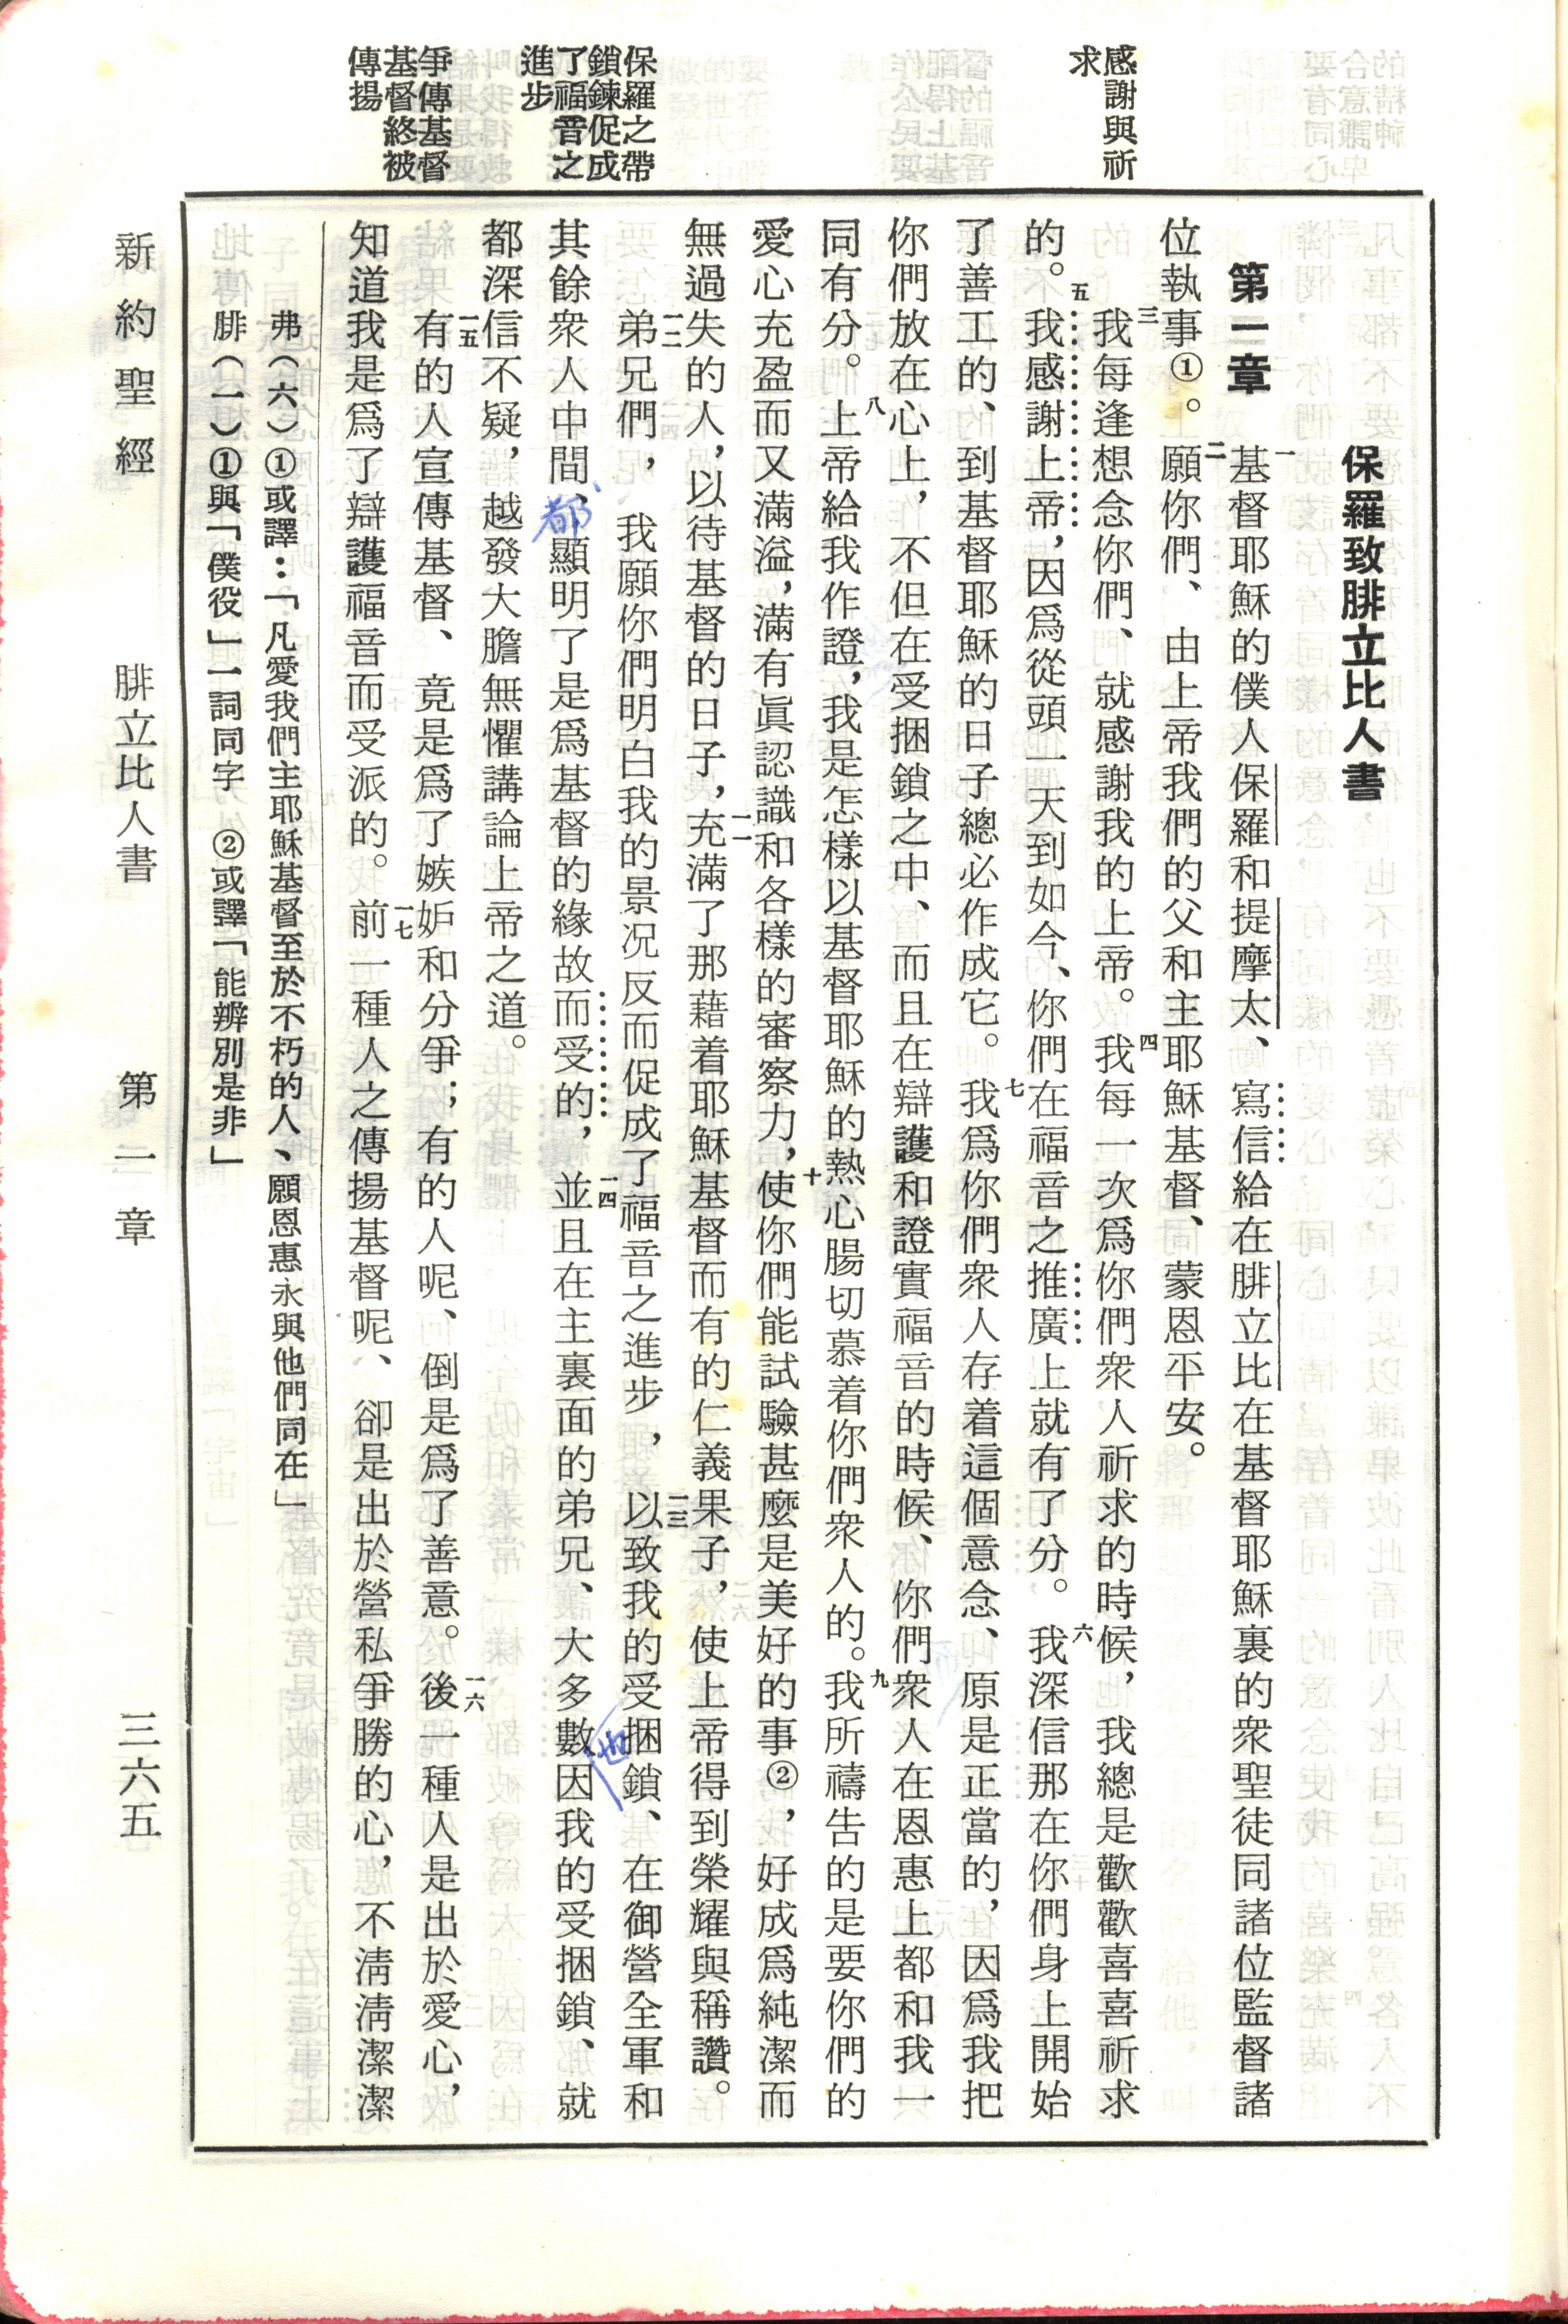 感謝與祈
求
保羅之帶
鎖鍊促成
了福音之
進步
爭傳基督
基督終被
傳揚
保羅致腓立比人書
第一章
一基督耶穌的僕人保羅和提摩太、寫信給在腓立比在基督耶穌裏的衆聖徒同諸位監督諸
位執事①。二願你們、由上帝我們的父和主耶穌基督、蒙恩平安。
三我每逢想念你們、就感謝我的上帝。四我每一次爲你們衆人祈求的時候，我總是歡歡喜喜祈求
的。五我感謝上帝，因爲從頭一天到如今、你們在福音之推廣上就有了分。六我深信那在你們身上開始
了善工的、到基督耶穌的日子總必作成它。七我爲你們衆人存着這個意念、原是正當的，因爲我把
你們放在心上，不但在受捆鎖之中、而且在辯護和證實福音的時候、你們衆人在恩惠上都和我一
同有分。八上帝給我作證，我是怎樣以基督耶穌的熱心腸切慕着你們衆人的。九我所禱告的是要你們的
愛心充盈而又滿溢，滿有眞認識和各樣的審察力，十使你們能試驗甚麼是美好的事②，好成爲純潔而
無過失的人，以待基督的日子，一一充滿了那藉着耶穌基督而有的仁義果子，使上帝得到榮耀與稱讚。
一二弟兄們，我願你們明白我的景况反而促成了福音之進步，一三以致我的受捆鎖、在御營全軍和
其餘衆人中間、都顯明了是爲基督的緣故而受的，一四並且在主裏面的弟兄、大多數也因我的受捆鎖、就
都深信不疑，越發大膽無懼講論上帝之道。
一五有的人宣傳基督、竟是爲了嫉妒和分爭；有的人呢、倒是爲了善意。一六後一種人是出於愛心，
知道我是爲了辯護福音而受派的。一七前一種人之傳揚基督呢、卻是出於營私爭勝的心，不淸淸潔潔
弗（六）①或譯：「凡愛我們主耶穌基督至於不朽的人、願恩惠永與他們同在」
腓（一）①與「僕役」一詞同字　②或譯「能辨別是非」
新約聖經　腓立比人書　第一章　三六五